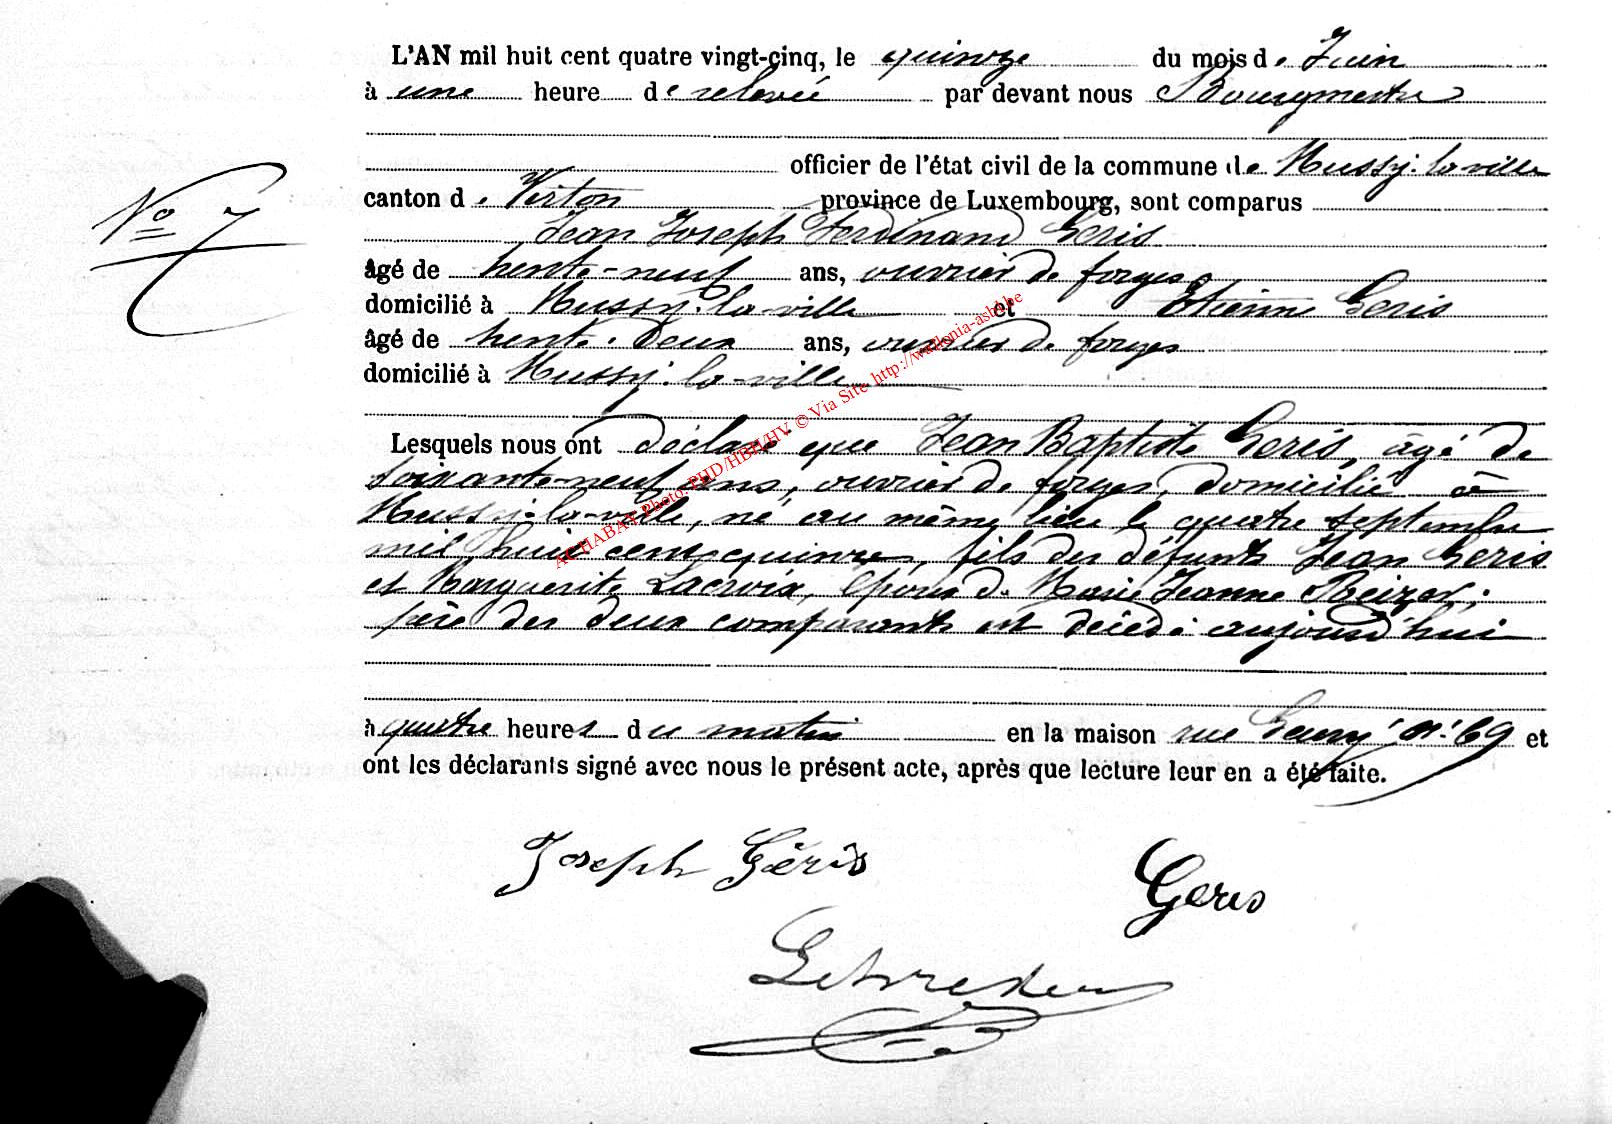 L'AN mil huit cent quatre vingt-cinq, le quinze du mois de Juin
à une heure de relevée par devant nous Bourgmestre
officier de l'état civil de la commune de Mussy-la-ville
N° 7
canton de Virton province de Luxembourg, sont comparus
Jean Joseph Ferdinand Geris
âgé de trente-neuf ans, ouvrier de forges
domicilié à Mussy-la-ville et Etienne Geris
âgé de trente-deux ans, ouvrier de forges
domicilié à Mussy-la-ville
Lesquels nous ont déclaré que Jean Baptiste Geris, âgé de
soixante-neuf ans, ouvrier de forges, domicilié à
Mussy-la-ville, né au même lieu le quatre septembre
mil huit cent quinze, fils des défunts Jean Geris
et Marguerite Lacroix, époux de Marie Jeanne
père des deux comparants est décédé aujourd'hui
à quatre heures du matin en la maison rue n° 69 et
ont les déclarants signé avec nous le présent acte, après que lecture leur en a été faite.
Joseph Géris Geris
ACHABAN Photo: PHD/HBH/HV © Via Site http://wallonia-asbl.be